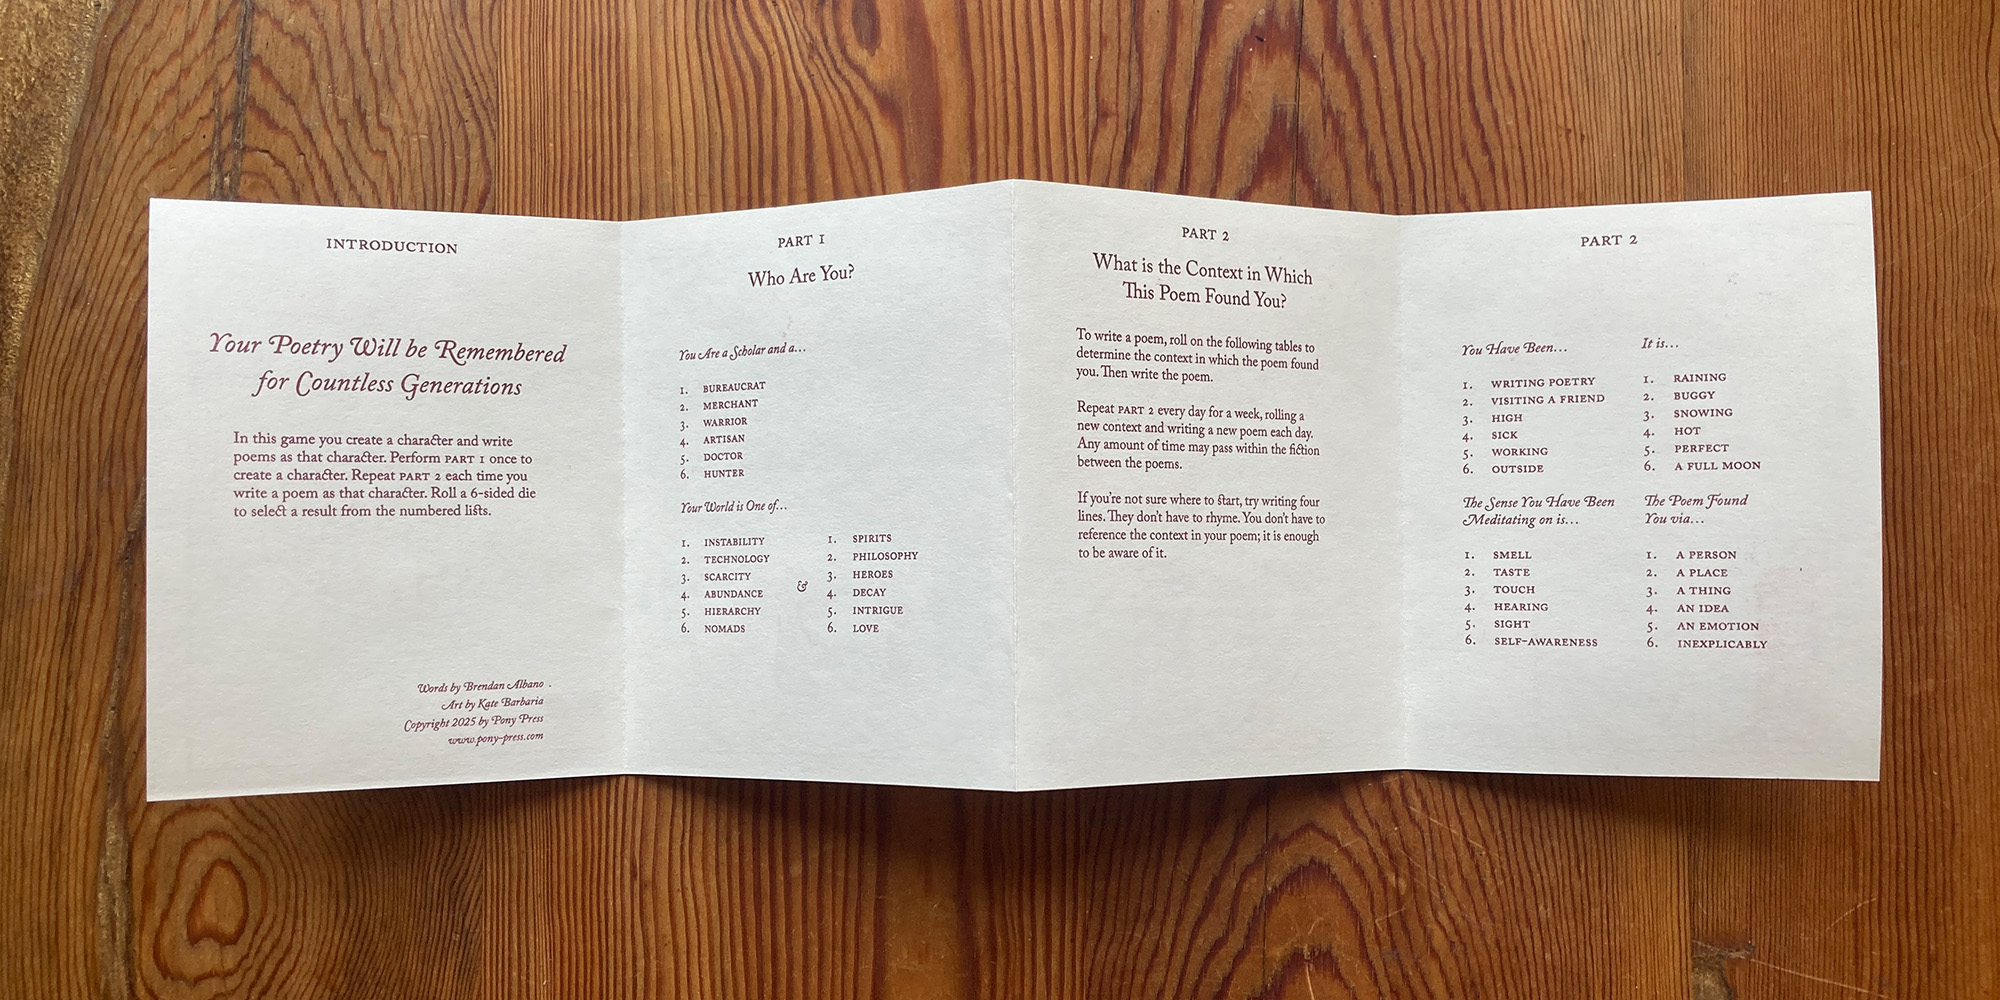 INTRODUCTION
Your Poetry Will be Remembered
for Countless Generations
In this game you create a character and write
poems as that character. Perform PART 1 once to
create a character. Repeat PART 2 each time you
write a poem as that character. Roll a 6-sided die
to select a result from the numbered lists.
Words by Brendan Albano
Art by Kate Barbaria
Copyright 2025 by Pony Press
www.pony-press.com
PART 1
Who Are You?
You Are a Scholar and a…
1. BUREAUCRAT
2. MERCHANT
3. WARRIOR
4. ARTISAN
5. DOCTOR
6. HUNTER
Your World is One of…
1. INSTABILITY
2. TECHNOLOGY
3. SCARCITY
4. ABUNDANCE
5. HIERARCHY
6. NOMADS
&
1. SPIRITS
2. PHILOSOPHY
3. HEROES
4. DECAY
5. INTRIGUE
6. LOVE
PART 2
What is the Context in Which
This Poem Found You?
To write a poem, roll on the following tables to
determine the context in which the poem found
you. Then write the poem.
Repeat PART 2 every day for a week, rolling a
new context and writing a new poem each day.
Any amount of time may pass within the fiction
between the poems.
If you're not sure where to start, try writing four
lines. They don't have to rhyme. You don't have to
reference the context in your poem; it is enough
to be aware of it.
PART 2
You Have Been…
1. WRITING POETRY
2. VISITING A FRIEND
3. HIGH
4. SICK
5. WORKING
6. OUTSIDE
It is…
1. RAINING
2. BUGGY
3. SNOWING
4. HOT
5. PERFECT
6. A FULL MOON
The Sense You Have Been
Meditating on is…
1. SMELL
2. TASTE
3. TOUCH
4. HEARING
5. SIGHT
6. SELF-AWARENESS
The Poem Found
You via…
1. A PERSON
2. A PLACE
3. A THING
4. AN IDEA
5. AN EMOTION
6. INEXPLICABLY